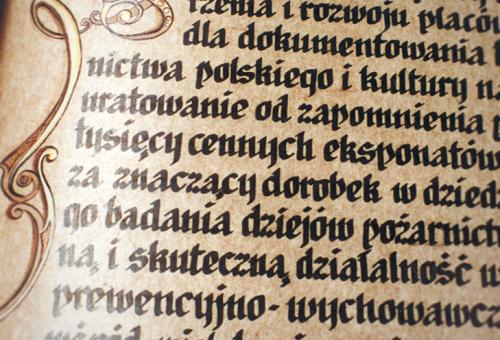 rzenia i rozwoju placów
dla dokumentowania
nictwa polskiego i kultury na
uratowanie od zapomnienia
tysięcy cennych eksponatów
za znaczący dorobek w dziedz
go badania dziejów pożarnict
ną, i skuteczną działalność w
prewencyjno-wychowawcz